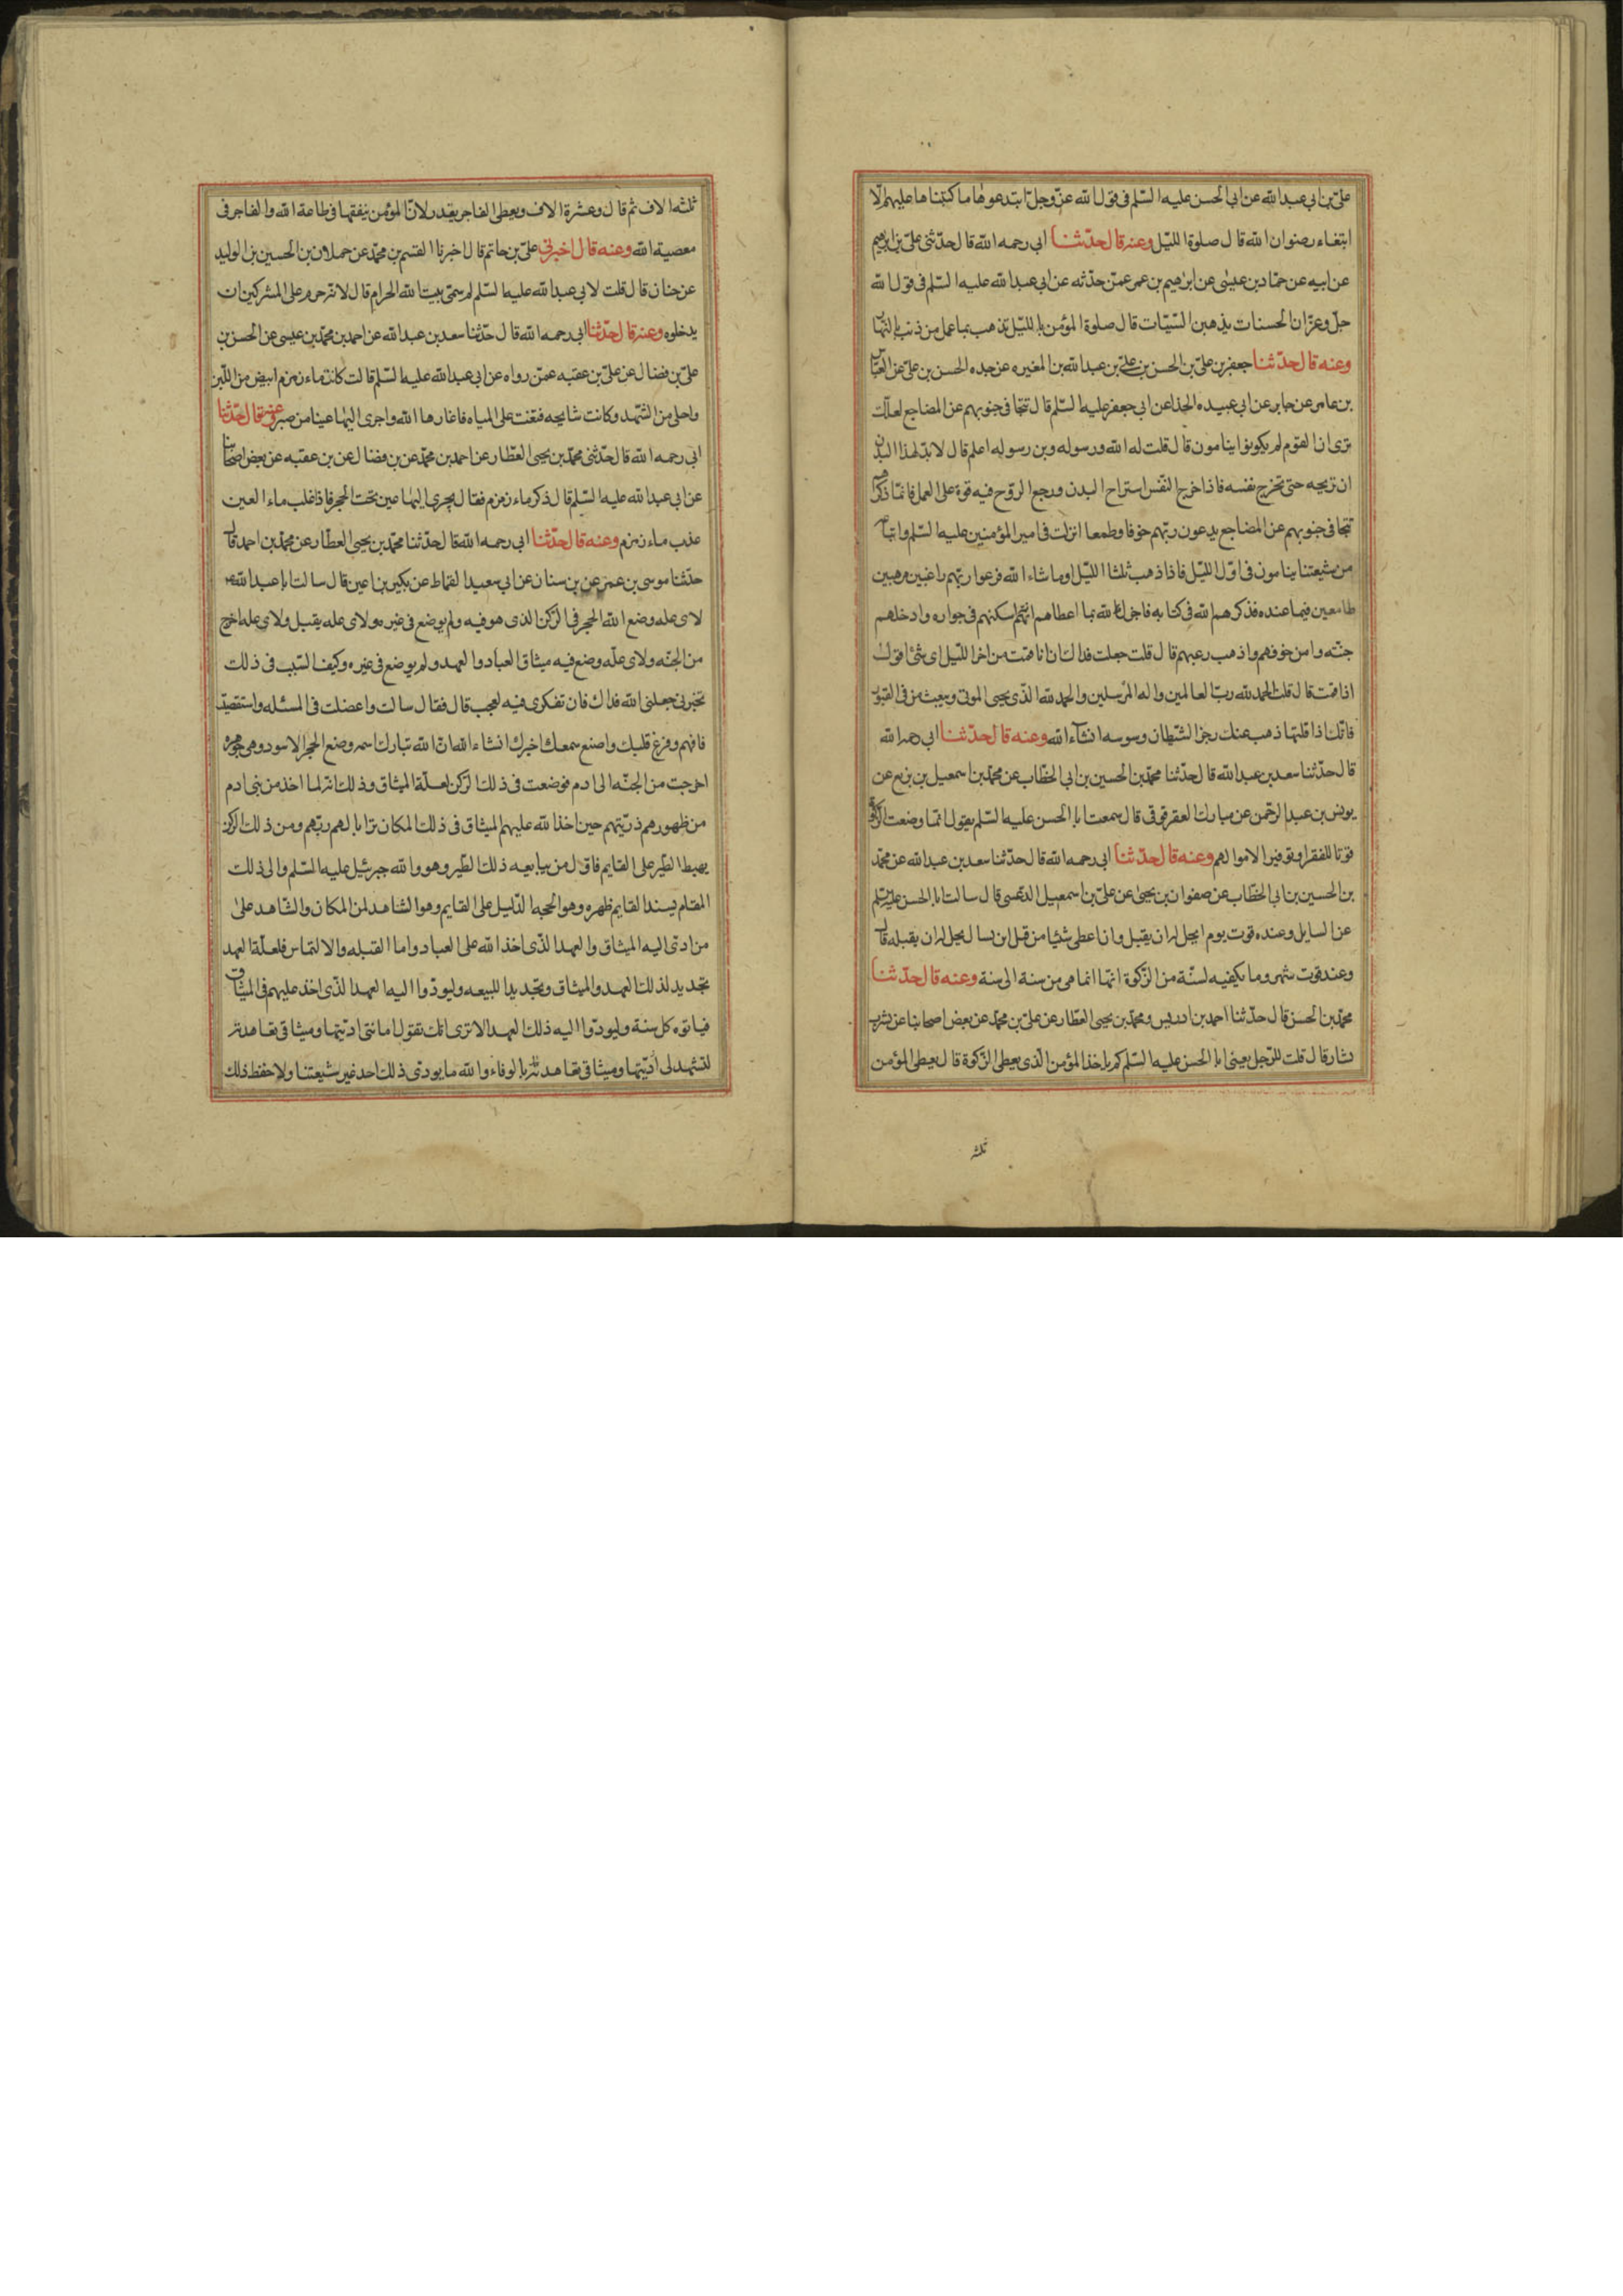 علی بن ابی عبد الله عن ابی الحسن علیه السلم فی قول الله عز وجل ابتدعوها ما کتبناها علیهم الا
ابتغاء رضوان الله قال صلوة اللیل وعنه قال حدثنا ابی رحمه الله قال حدثنی علی بن ابرهیم
عن ابیه عن حماد بن عیسی عن ابرهیم بن عمر عمن حدثه عن ابی عبد الله علیه السلم فی قول الله
جل وعز ان الحسنات یذهبن السیئات قال صلوة المؤمن باللیل تذهب بما عمل من ذنب بالنهار
وعنه قال حدثنا جعفر بن علی بن الحسن بن علی بن عبد الله بن المغیره عن جده الحسن بن علی عن العباس
بن عامر عن جابر عن ابی عبیده الحذا عن ابی جعفر علیه السلم قال تتجافی جنوبهم عن المضاجع لعلک
تری ان القوم لم یکونوا ینامون قال قلت له الله ورسوله وبن رسوله اعلم قال لابد لهذا البدن
ان تریحه حتی تخرج نفسه فاذا خرج النفس استراح البدن ورجع الروح فیه قوة علی العمل فانما ذکرهم
تتجافی جنوبهم عن المضاجع یدعون ربهم خوفا وطمعا انزلت فی امیر المؤمنین علیه السلم واتباعه
من شیعتنا ینامون فی اول اللیل فاذا ذهب ثلثا اللیل او ما شاء الله فزعوا ربهم راغبین مرهبین
طامعین فیما عنده فذکرهم الله فی کتابه فاخبرک الله بما اعطاهم انهم اسکنهم فی جواره وادخلهم
جنته وامن خوفهم واذهب رعبهم قال قلت جعلت فداک ان انا قمت من اخر اللیل ای شئ اقول
اذا قمت قال قلت الحمد لله رب العالمین واله المرسلین والحمد لله الذی یحیی الموتی ویبعث من فی القبور
فانک اذا قلتها ذهب عنک رجز الشیطان ووسوسه انشاء الله وعنه قال حدثنا ابی رحمه الله
قال حدثنا سعد بن عبد الله قال حدثنا محمد بن الحسین بن ابی الخطاب عن محمد بن اسمعیل بن بزیع عن
یونس بن عبد الرحمن عن مبارک العقرقوفی قال سمعت ابا الحسن علیه السلم یقول انما وضعت الزکوة
قوتا للفقرا وتوفیرا لاموالهم وعنه قال حدثنا ابی رحمه الله قال حدثنا سعد بن عبد الله عن محمد
بن الحسین بن ابی الخطاب عن صفوان بن یحیی عن علی بن اسمعیل الدغسی قال سالت ابا الحسن علیه السلم
عن السایل وعنده قوت یوم ایحل له ان یقبل وان اعطی شیئا من قبل ان یسال یحل له ان یقبله قال
وعنده قوت شهر وما یکفیه لسنة من الزکوة انها انما هی من سنة الی سنة وعنه قال حدثنا
محمد بن الحسن قال حدثنا احمد بن ادریس ومحمد بن یحیی العطار عن علی بن محمد عن بعض اصحابنا عن بشر بن
بشار قال قلت للرجل یعنی ابا الحسن علیه السلم کم یاخذ المؤمن الذی یعطی الزکوة قال یعطی المؤمن
ثلثه
ثلثه الاف ثم قال وعشرة الاف ویعطی الفاجر بقدر لان المؤمن ینفقها فی طاعة الله والفاجر فی
معصیة الله وعنه قال اخبرنی علی بن حاتم قال اخبرنا القسم بن محمد عن حملان بن الحسین بن الولید
عن حنان قال قلت لابی عبد الله علیه السلم لم سمی بیت الله الحرام قال لانه حرم علی المشرکین ان
یدخلوه وعنه قال حدثنا ابی رحمه الله قال حدثنا سعد بن عبد الله عن احمد بن محمد بن عیسی عن الحسن بن
علی بن فضال عن علی بن عقبه عمن رواه عن ابی عبد الله علیه السلم قالت کانت ماء زمزم ابیض من اللبن
واحلی من الشهد وکانت شایحه فبغت علی المیاه فاغارها الله واجری الیها عینا من صبر وعنه قال حدثنا
ابی رحمه الله قال حدثنی محمد بن یحیی العطار عن احمد بن محمد عن بن فضال عن بن عقبه عن بعض اصحابنا
عن ابی عبد الله علیه السلم قال ذکر ماء زمزم فقال یجری الیها عین تحت الحجر فاذا غلب ماء العین
عذب ماء زمزم وعنه قال حدثنا ابی رحمه الله قال حدثنا محمد بن یحیی العطار عن محمد بن احمد قال
حدثنا موسی بن عمر عن بن سنان عن ابی سعید القماط عن بکیر بن اعین قال سالت ابا عبد الله ع
لای عله وضع الله الحجر فی الرکن الذی هو فیه ولم یوضع فی غیره ولای عله یقبل ولای عله اخرج
من الجنه ولای عله وضع فیه میثاق العباد والعهد ولم یوضع فی غیره وکیف السبب فی ذلک
تخبرنی جعلنی الله فداک فان تفکری فیه لعجب قال فقال سالت واعضلت فی المسئله واستقصیت
فافهم وفرغ قلبک واصنع سمعک اخبرک انشاء الله ان الله تبارک اسمه وضع الحجر الاسود وهی جوهره
اخرجت من الجنه الی ادم فوضعت فی ذلک الرکن لعلة المیثاق وذلک انه لما اخذ من بنی ادم
من ظهورهم ذریتهم حین اخذ الله علیهم المیثاق فی ذلک المکان ترایا لهم ربهم ومن ذلک الرکن
یهبط الطیر علی القایم فاول من یبایعه ذلک الطیر وهو والله جبرئیل علیه السلم والی ذلک
المقام یسند القایم ظهره وهو الحجه الدلیل علی القایم وهو الشاهد لمن المکان والشاهد علی
من ادی الیه المیثاق والعهد الذی اخذ الله علی العباد واما القبله والالتماس فلعلة العهد
تجدید لذلک العهد والمیثاق وتجدیدا للبیعه ولیودوا الیه العهد الذی اخذ علیهم فی المیثاق
فیاتوه کل سنة ولیودوا الیه ذلک العهد الا تری انک تقول امانتی ادیتها ومیثاقی تعاهدته
لتشهد لی ادیتها ومیثاقی تعاهدته بالوفاء والله ما یودی ذلک احد غیر شیعتنا ولا حفظ ذلک